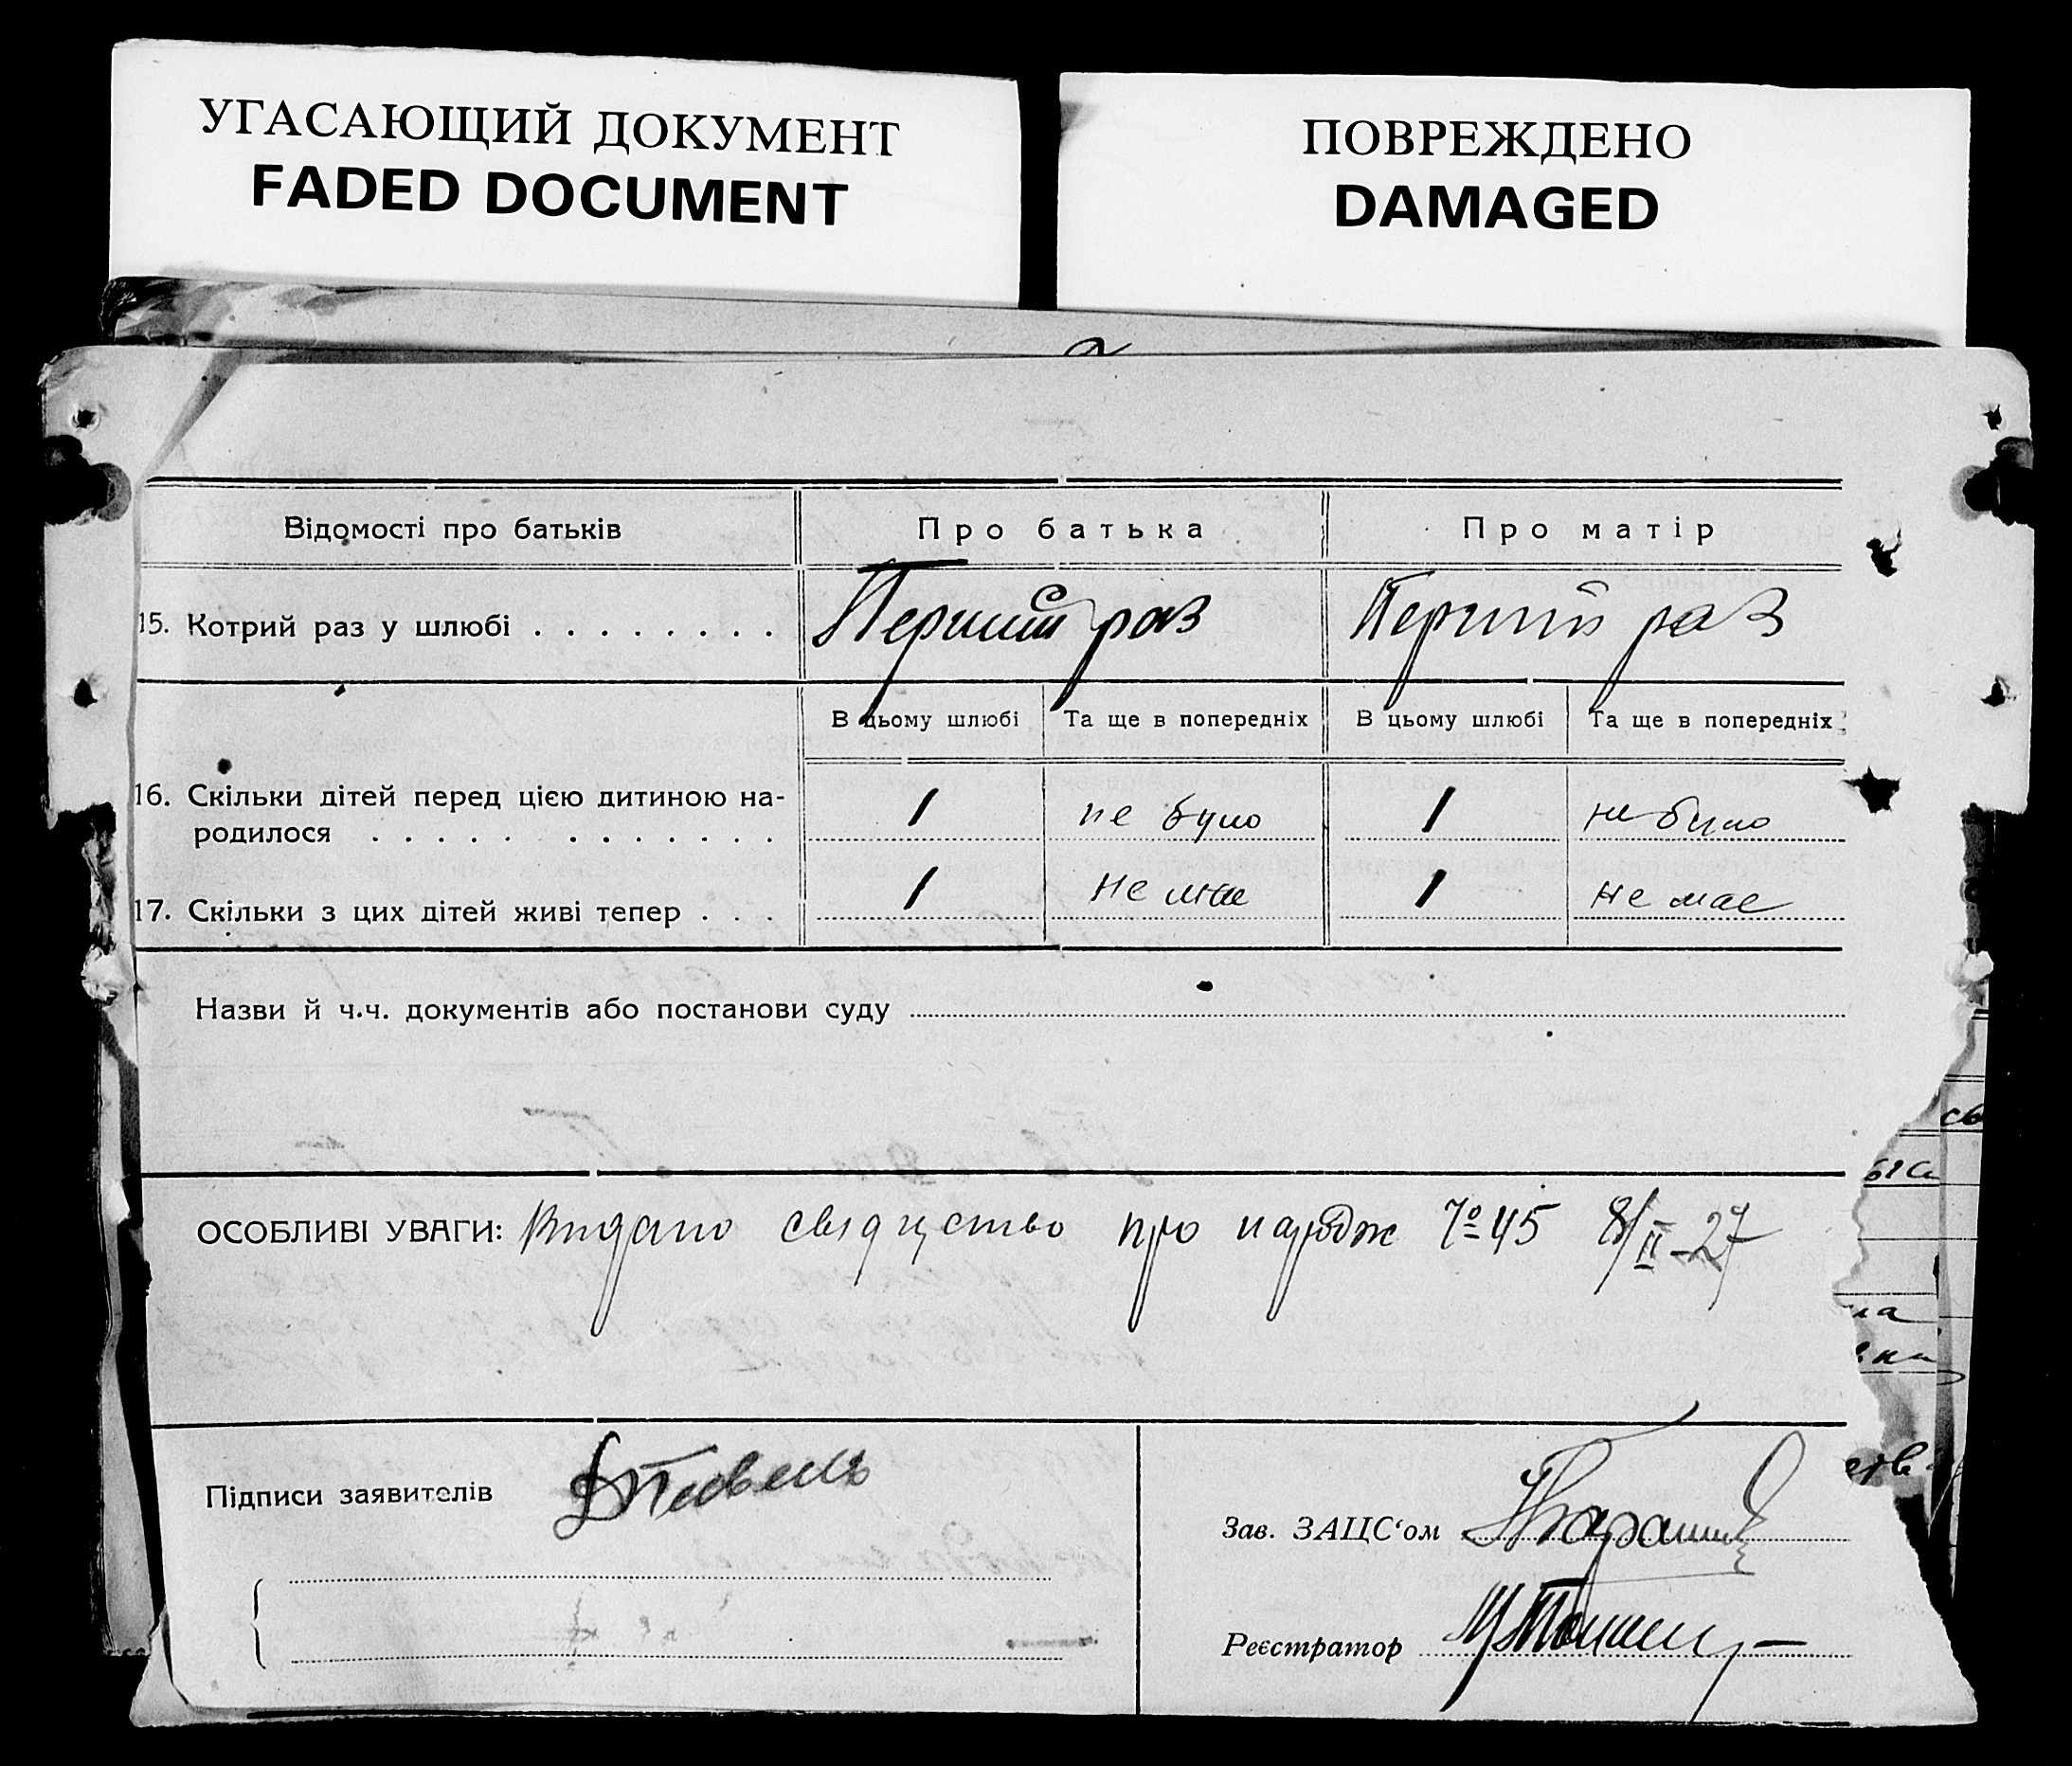 УГАСАЮЩИЙ ДОКУМЕНТ
FADED DOCUMENT
ПОВРЕЖДЕНО
DAMAGED
Відомості про батьків Про батька Про матір
15. Котрий раз у шлюбі . . . . . . . . Перший раз Перший раз
В цьому шлюбі Та ще в попередніх В цьому шлюбі Та ще в попередніх
16. Скільки дітей перед цією дитиною на-
родилося . . . . . . . . . . . . . 1 не було 1 не було
17. Скільки з цих дітей живі тепер . . . 1 не має 1 не має
Назви й ч.ч. документів або постанови суду
ОСОБЛИВІ УВАГИ: Видано свідуцтво про народж № 45 8/II-27
Підписи заявителів
Зав. ЗАЦС‘ом
Реєстратор